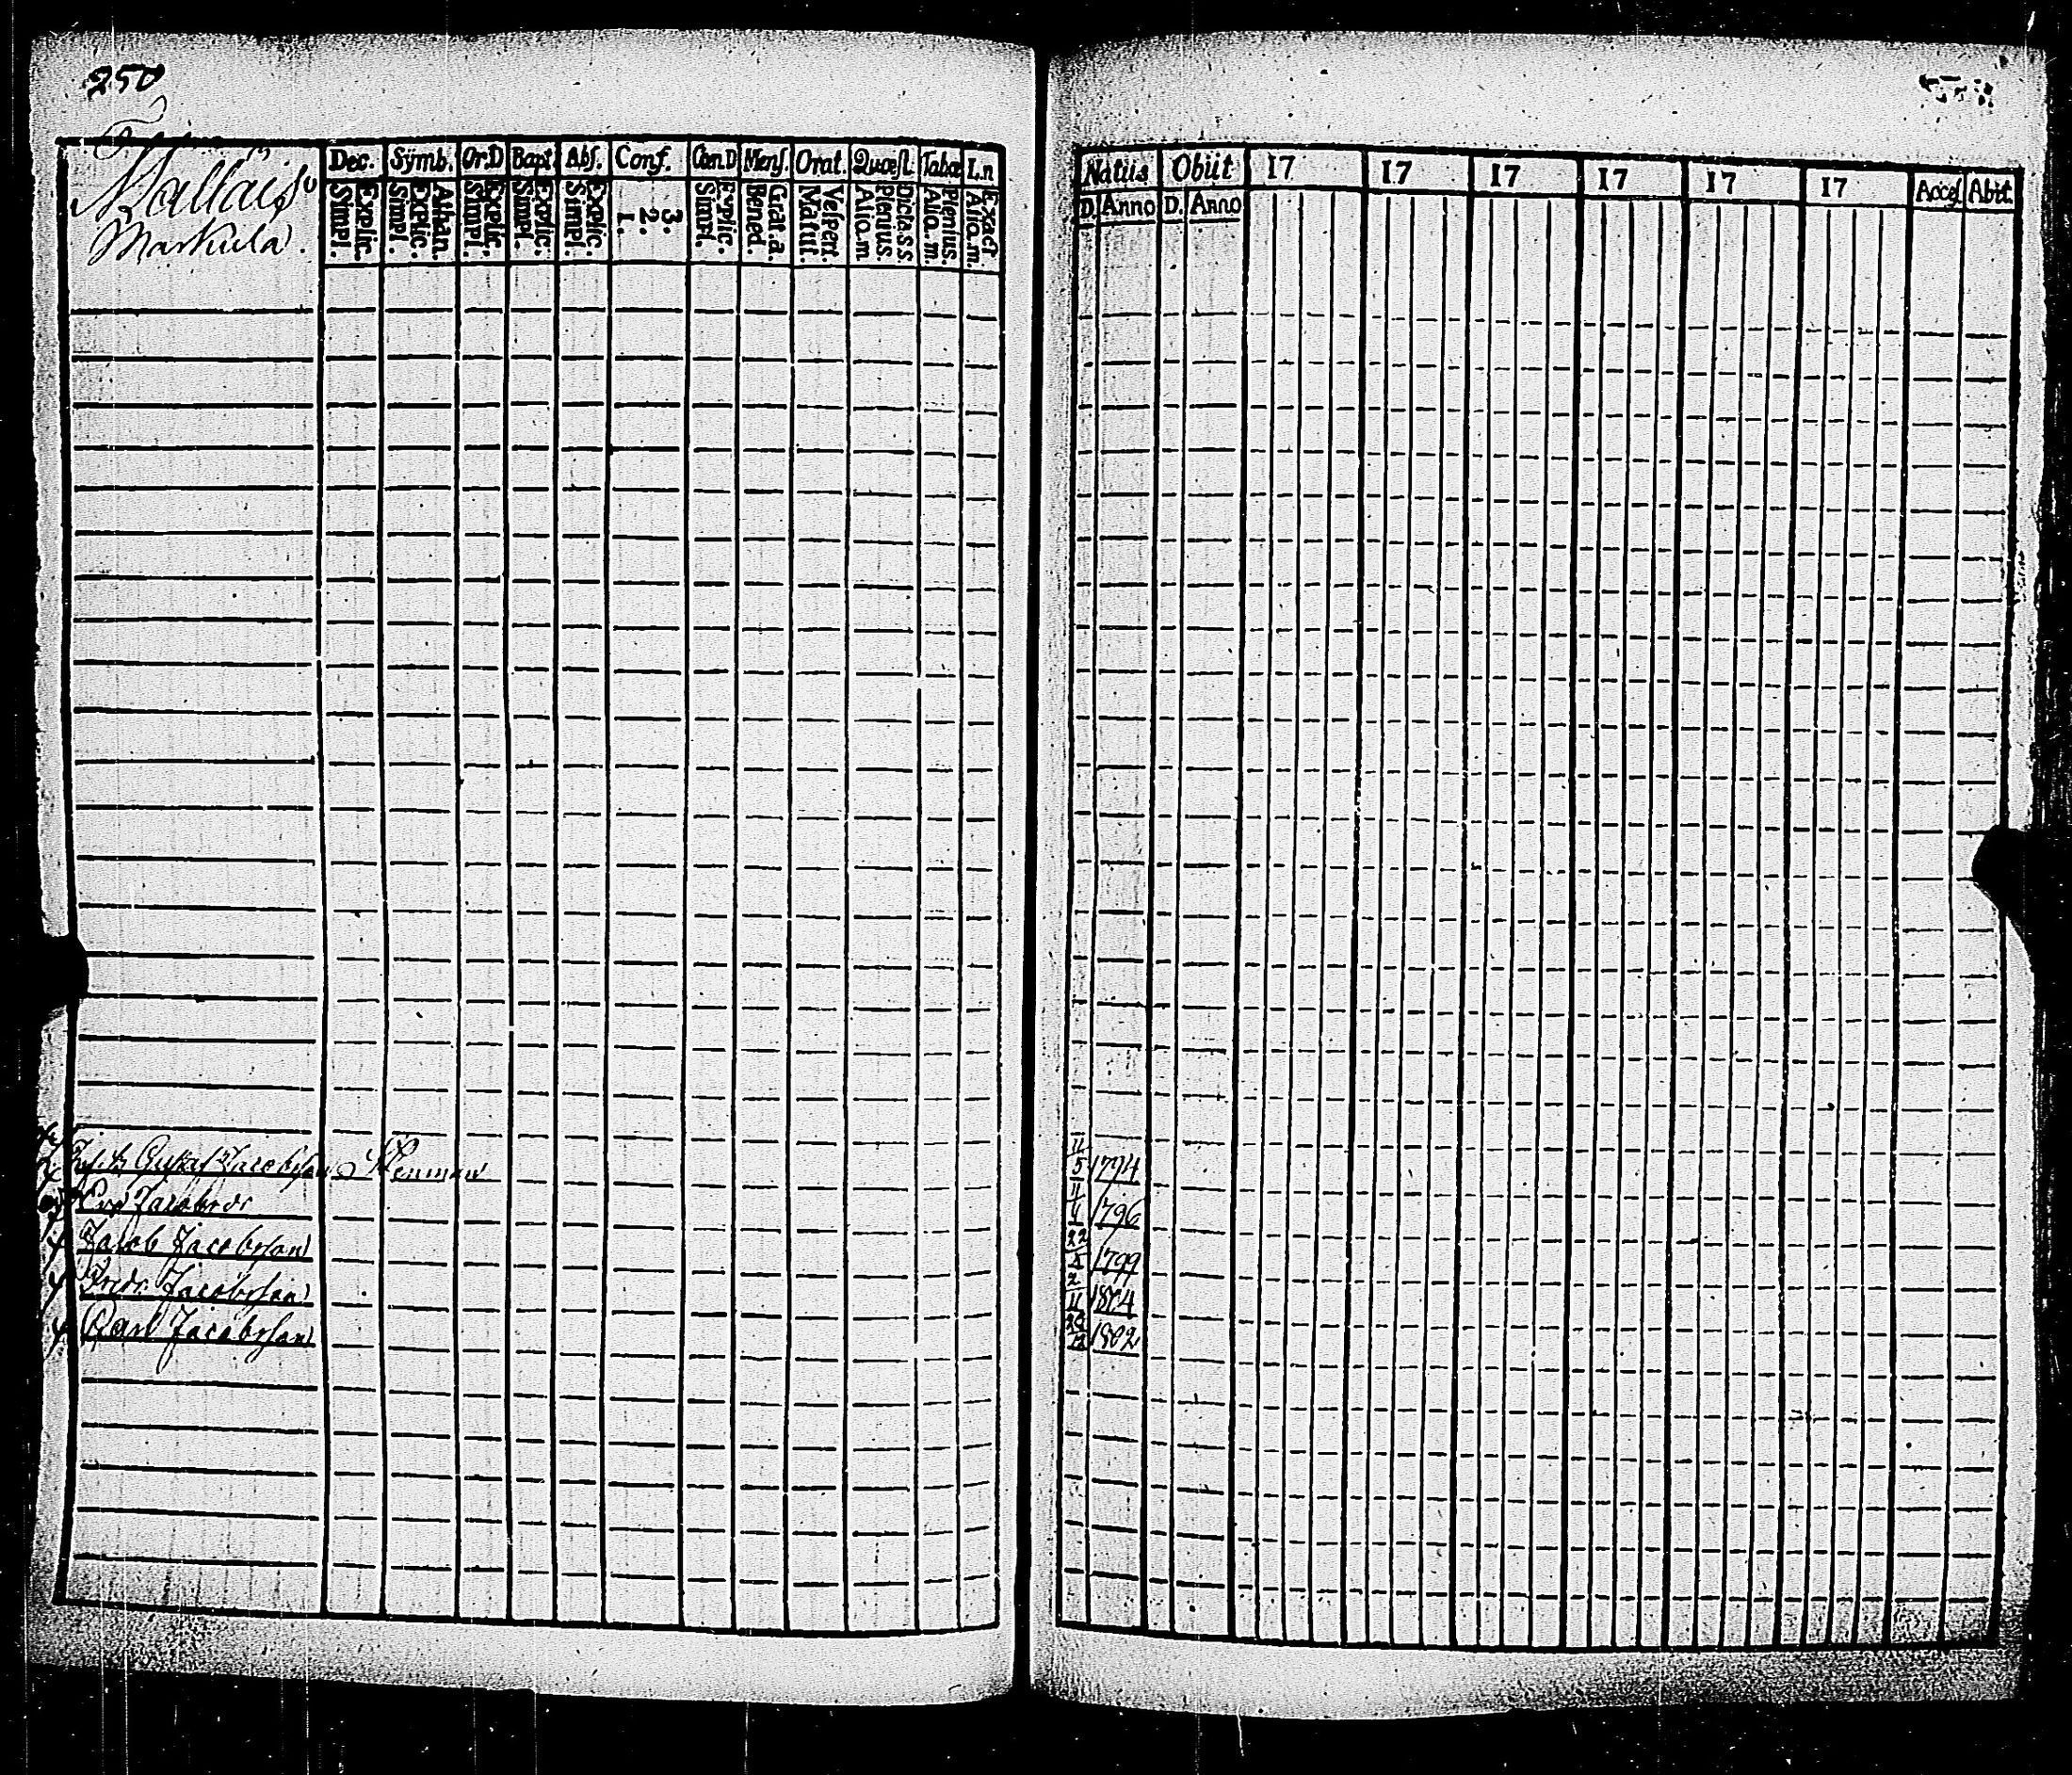 250
Mallais
Markula.
Dec. Symb. Or.D Bapt. Abs. Conf. Can.D Mens. Orat. Quæst. Tabœ L.n
Simpl. Explic. Simpl. Explic. Athan. Simpl. Explic. Simpl. Explic. Simpl. Explic. 1. 2. 3. Simpl. Explic. Bened. Grat.a. Matut. Vespert. Alio.m Plenius Dicta.s.s Alio.m. Plenius. Alio.m. Exact
Natus Obiit 17 17 17 17 17 17 Acces. Abiit.
D. Anno D. Anno
Gustaf Jacobsson Stenman 11/5 1794
Eva Jacobsdr 11/4 1796
Jacob Jacobsson 22/5 1799
Fredr. Jacobsson 2/11 1804
Carl Jacobsson 28/12 1802